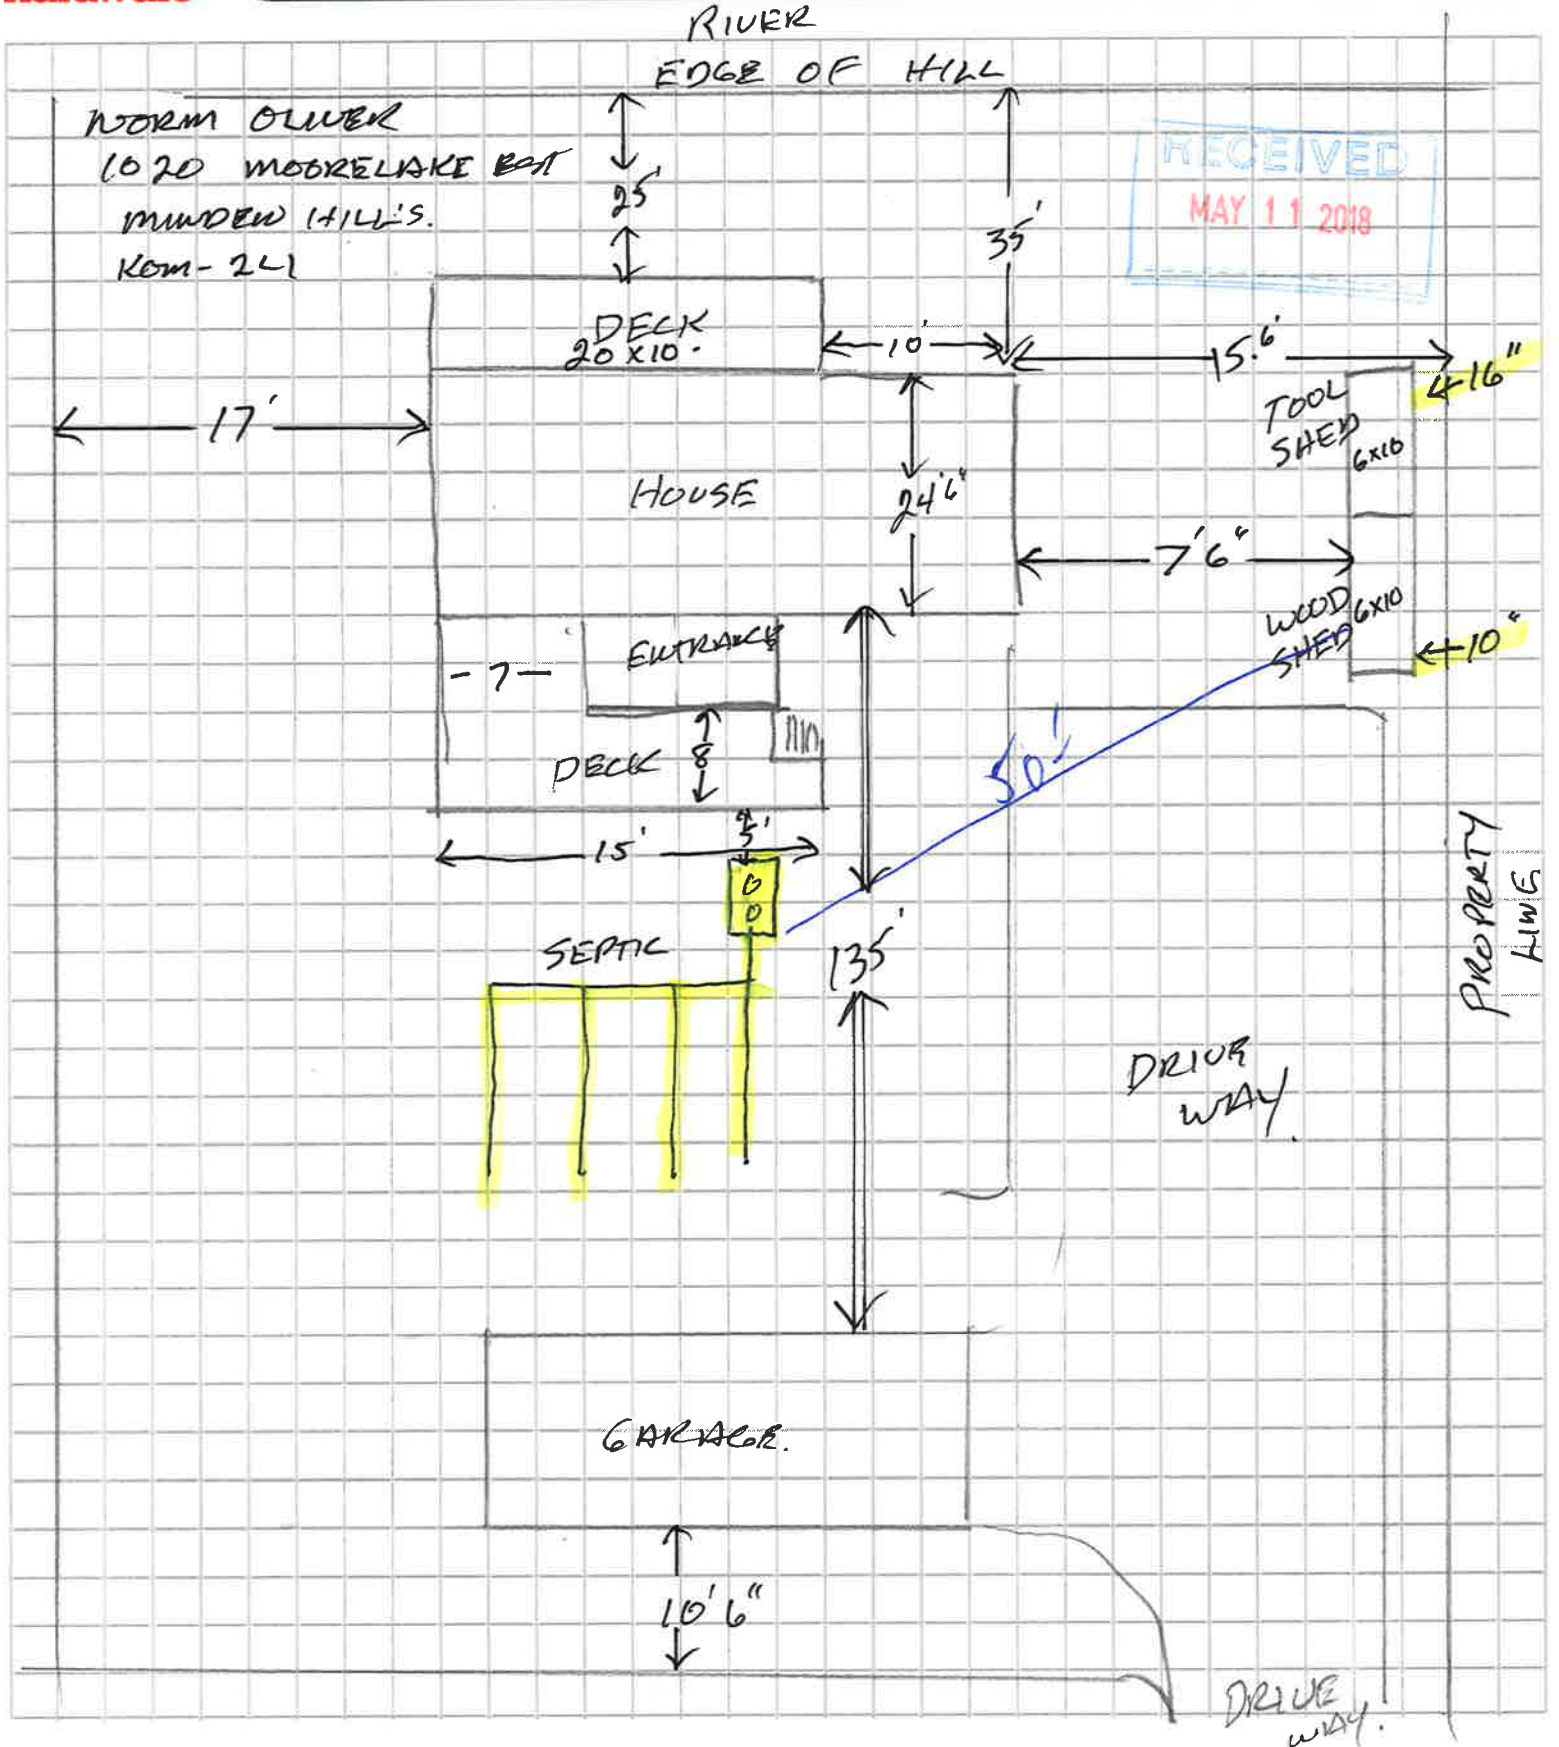 RIVER
EDGE OF HILL
NORM OLIVER
1020 MOORELAKE EST
MINDEN HILL'S.
K0M-2L1
RECEIVED
MAY 11 2018
25'
35'
DECK
20 x 10.
10'
15.6'
16"
17'
TOOL
SHED
6x10
HOUSE
24'6"
7'6"
WOOD
SHED
6x10
10"
ENTRANCE
- 7 -
DECK
8
50'
15'
5'
SEPTIC
135'
PROPERTY
LINE
DRIVE
WAY.
GARAGE.
10'6"
DRIVE
WAY.